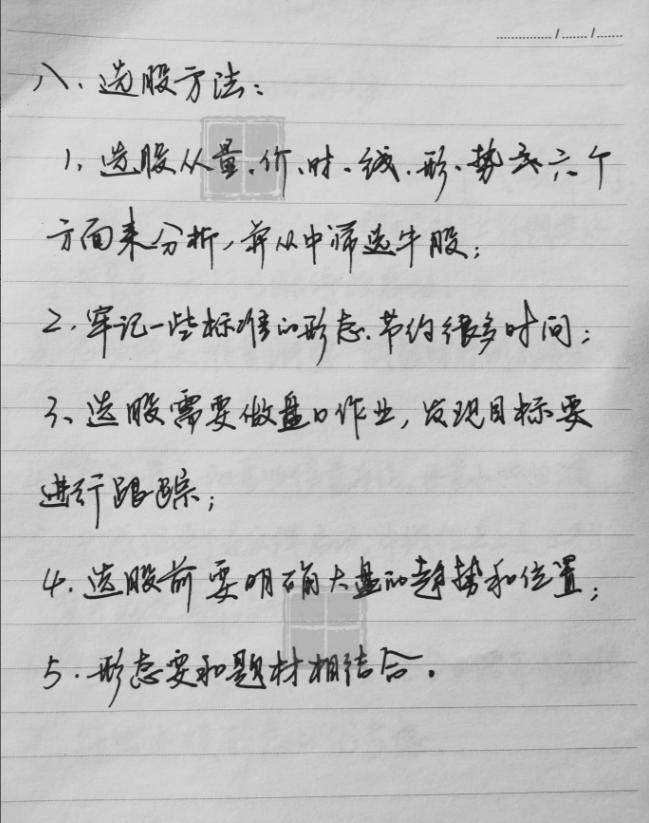 八、选股方法：
1、选股从量、价、时、线、形、势这六个
方面来分析，并从中筛选牛股；
2、牢记一些标准的形态、节约很多时间；
3、选股需要做盘口作业，发现目标要
进行跟踪；
4、选股前要明确大盘的趋势和位置；
5、形态要和题材相结合。